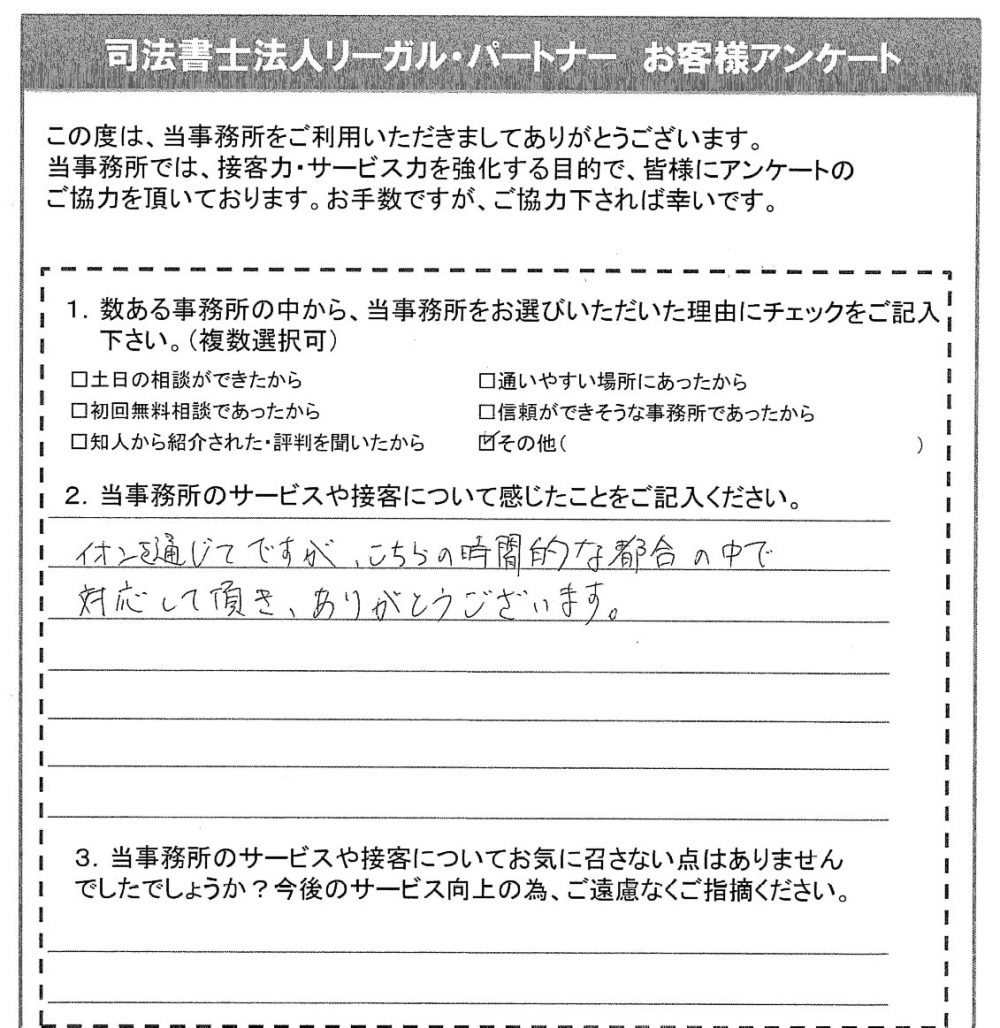 司法書士法人リーガル・パートナー　お客様アンケート
この度は、当事務所をご利用いただきましてありがとうございます。
当事務所では、接客力・サービス力を強化する目的で、皆様にアンケートの
ご協力を頂いております。お手数ですが、ご協力下されば幸いです。
1. 数ある事務所の中から、当事務所をお選びいただいた理由にチェックをご記入
下さい。（複数選択可）
□土日の相談ができたから　□通いやすい場所にあったから
□初回無料相談であったから　□信頼ができそうな事務所であったから
□知人から紹介された・評判を聞いたから　☑その他（　）
2. 当事務所のサービスや接客について感じたことをご記入ください。
イオンを通じてですが、こちらの時間的な都合の中で
対応して頂き、ありがとうございます。
3. 当事務所のサービスや接客についてお気に召さない点はありません
でしたでしょうか？今後のサービス向上の為、ご遠慮なくご指摘ください。